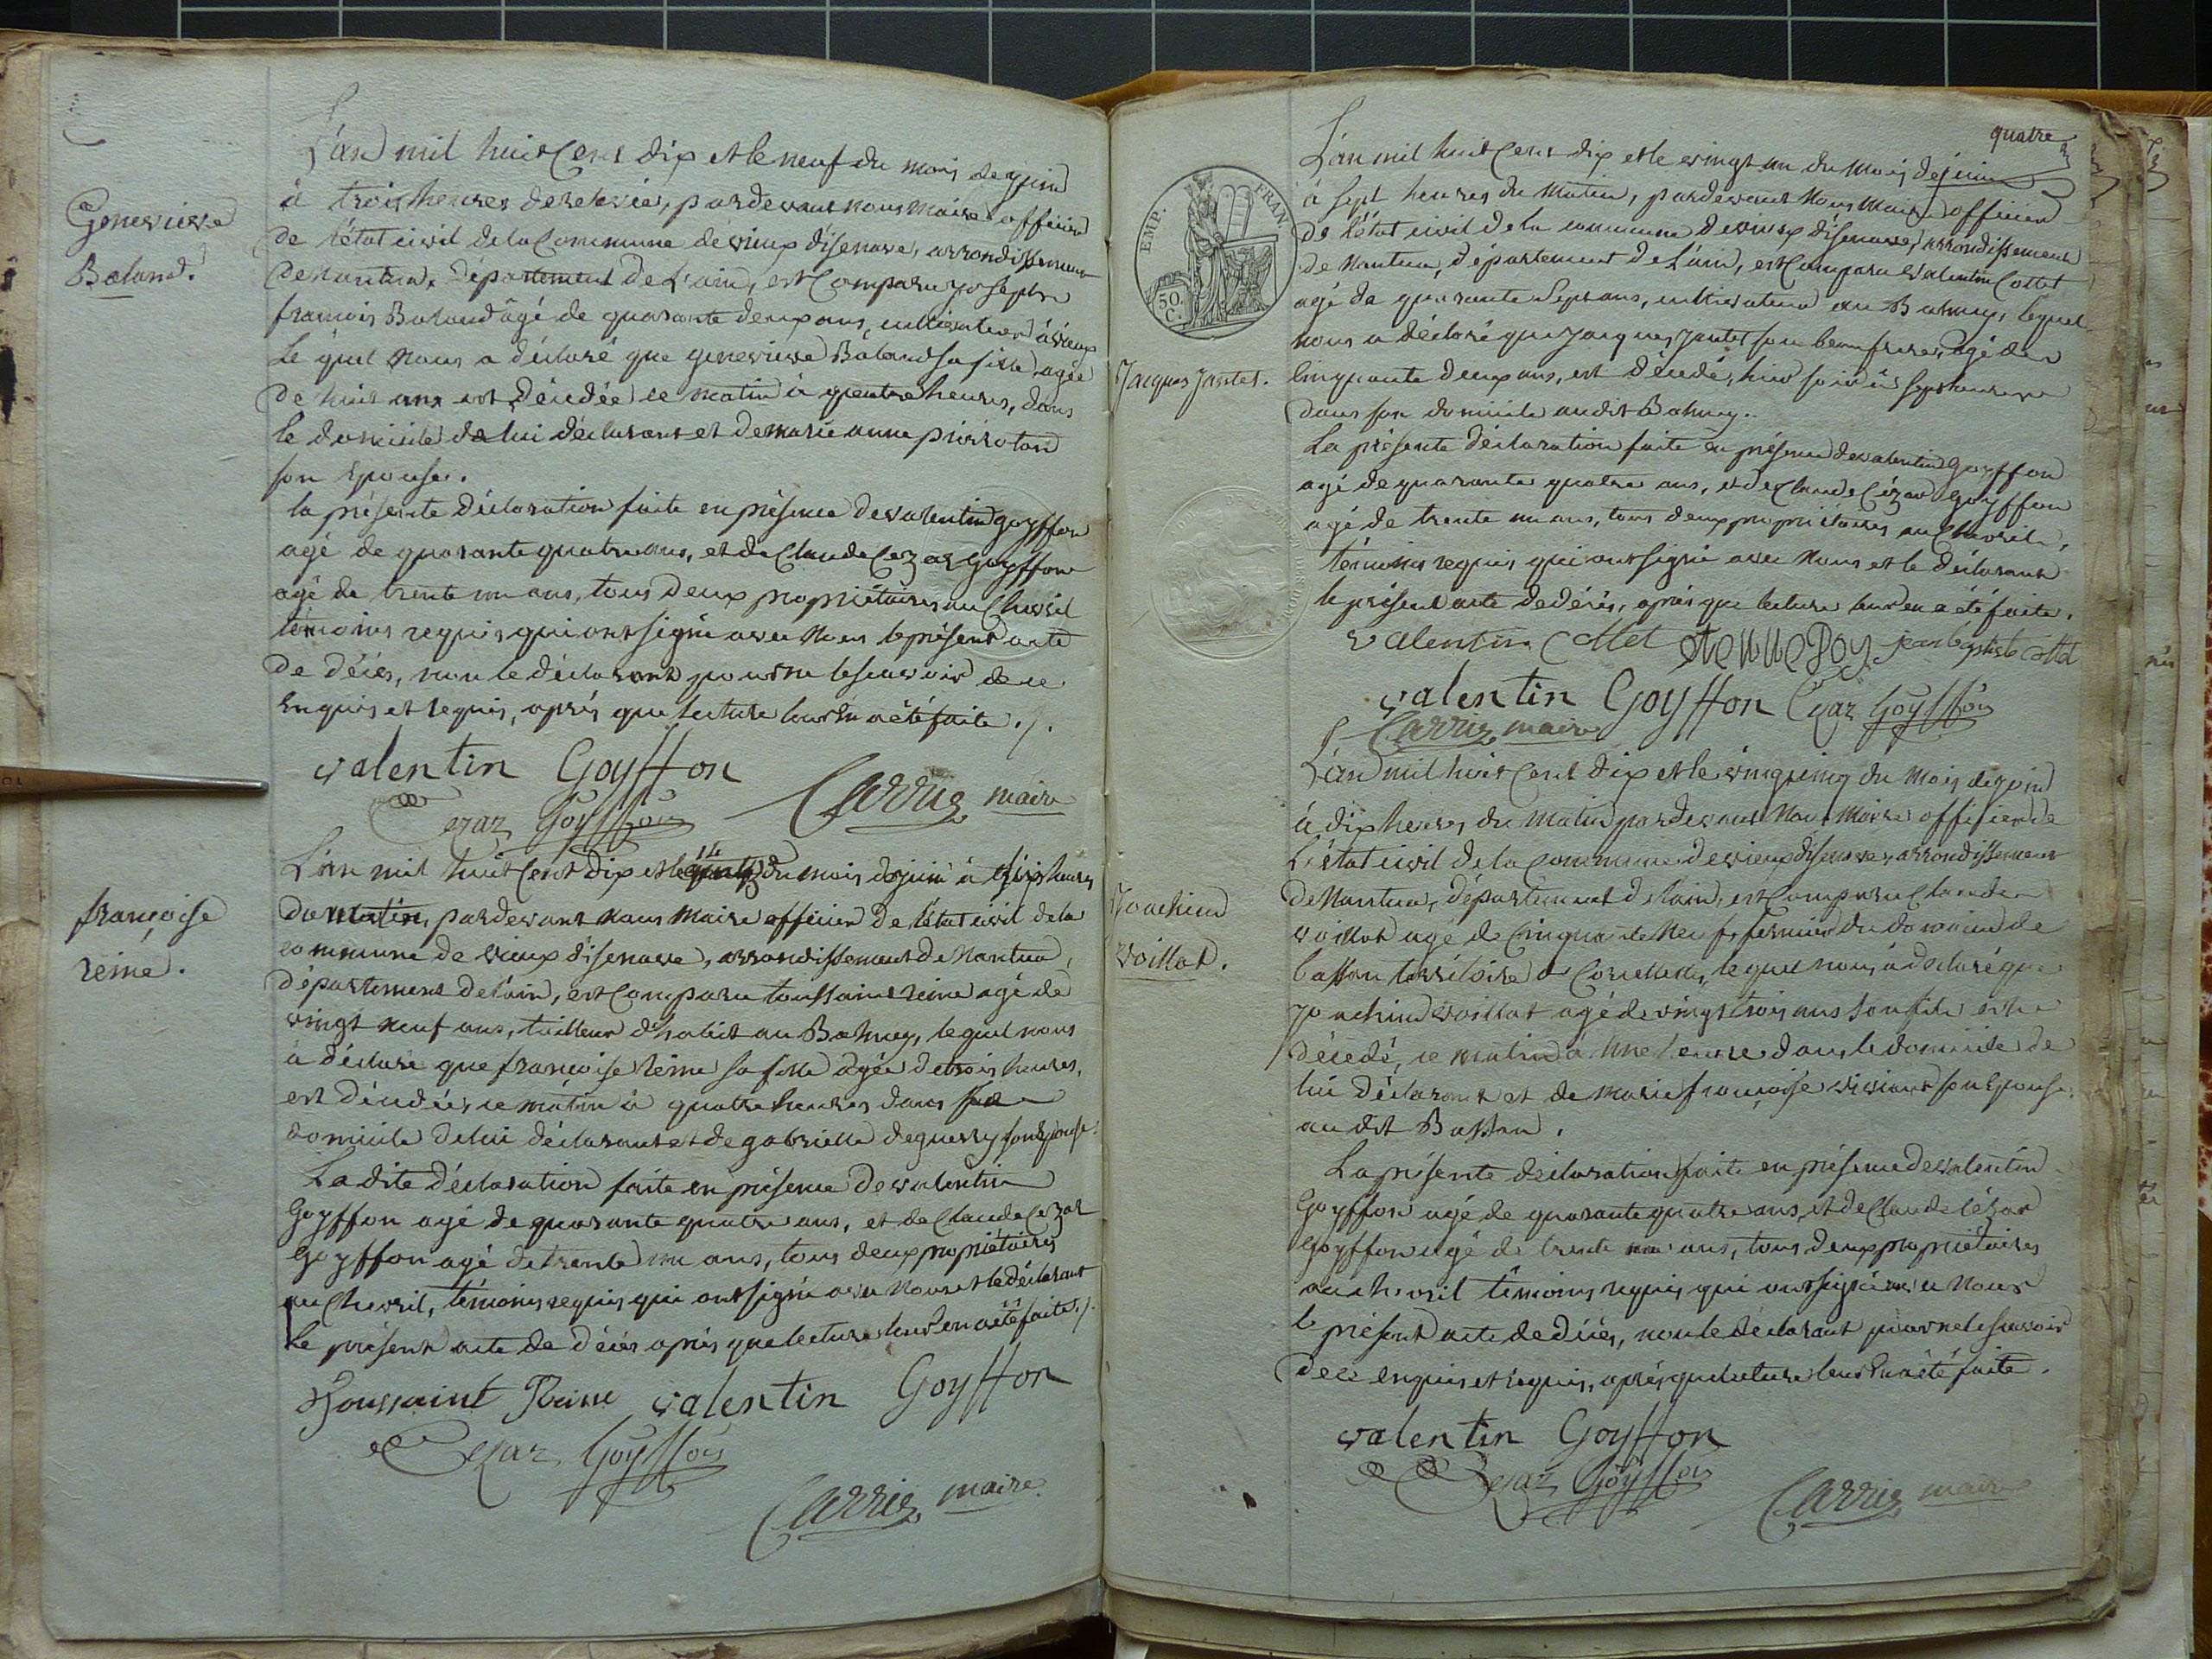 Genevieve
Baland.
L'an mil huit Cent dix et le neuf du mois de juin
à trois heures de relevée, pardevant nous maire officier
de l'état civil de la Commune de vieux d'isenave, arrondissement
de nantua, département de l'ain, est Comparu joseph
francois Baland âgé de quarante deux ans, cultivateur à vieux
le quel nous a déclaré que genevieve Baland sa fille agée
de huit ans est décédée ce matin à quatre heures, dans
le domicile de lui déclarant et de marie anne
son Epouse.
la présente déclaration faite en présence de valentin goyffon
agé de quarante quatre ans, et de Claude Cezar Goyffon
agé de trente un ans, tous deux propriétaires au Chevril
témoins requis qui ont signé avec nous le présent acte
de décès, non le déclarant pour ne le scavoir de ce
enquis et requis, après que lecture leur en a été faite ./.
valentin Goyffon
Cezar Goyffon Carrier maire
françoise
reine.
L'an mil huit Cent dix et le du mois de juin à heures
du matin, pardevant nous maire officier de l'état civil de la
commune de vieux d'isenave, arrondissement de Nantua,
département de l'ain, est Comparu toussaint reine agé de
vingt neuf ans, tailleur d'habit au Balmey, le quel nous
à déclaré que françoise reine sa fille agée de trois heures,
est décédée ce matin à quatre heures dans
domicile de lui déclarant et de gabrielle deguerry son Epouse.
La dite déclaration faite en présence de valentin
Goyffon agé de quarante quatre ans, et de Claude Cezar
Goyffon agé de trente un ans, tous deux propriétaires
au Chevril, témoins requis qui ont signé avec Nous et le déclarant
le présent acte de décès après que lecture leur en a été faite ./.
Toussaint Reine valentin Goyffon
Cezar Goyffon
Carrier maire
quatre
EMP. FRAN.
50. C.
Jacques Jantet.
L'an mil huit Cent dix et le vingt un du mois de juin
à sept heures du matin, pardevant Nous Maire officier
de l'état civil de la commune de vieux d'isenave, arrondissement
de Nantua, département de L'ain, est Comparu valentin Cottet
agé de quarante Sept ans, cultivateur au Balmey, lequel
nous a déclaré que Jacques Jantet son beau frere, agé de
Cinquante deux ans, est décédé, hier soir à sept heures
dans son domicile au dit Balmey.
La présente déclaration faite en présence de valentin Goyffon
agé de quarante quatre ans, et de Claude Cézar Goyffon
agé de trente un ans, tous deux propriétaires au Chevril,
témoins requis qui ont signé avec Nous et le déclarant
le présent acte de décès, après que lecture leur en a été faite.
valentin Cottet jean baptiste Cottet
valentin Goyffon Cezar Goyffon
Carrier maire
Joachim
voillat.
L'an mil huit Cent dix et le vingcinq du mois de juin
à dix heures du matin pardevant Nous Maire officier de
L'état civil de la Commune de vieux d'isenave, arrondissement
de Nantua, département de lain, est Comparu Claude
voillat agé de Cinquante Neuf, fermier du domaine de
bassan territoire de Corcelles, le quel nous à declaré que
joachim voillat agé de vingt trois ans son fils est
décédé, ce matin à Une heure dans le domicile de
lui déclarant et de marie françoise son Epouse
au dit Bassan.
La présente déclaration faite en présence de valentin
Goyffon agé de quarante quatre ans, et de Claude Cézar
Goyffon agé de trente un ans, tous deux propriétaires
au chevril témoins requis qui ont signé avec Nous
le présent acte de décès, non le déclarant pour ne le scavoir
de ce enquis et requis, après que lecture leur en à été faite.
valentin Goyffon
Cezar Goyffon
Carrier maire